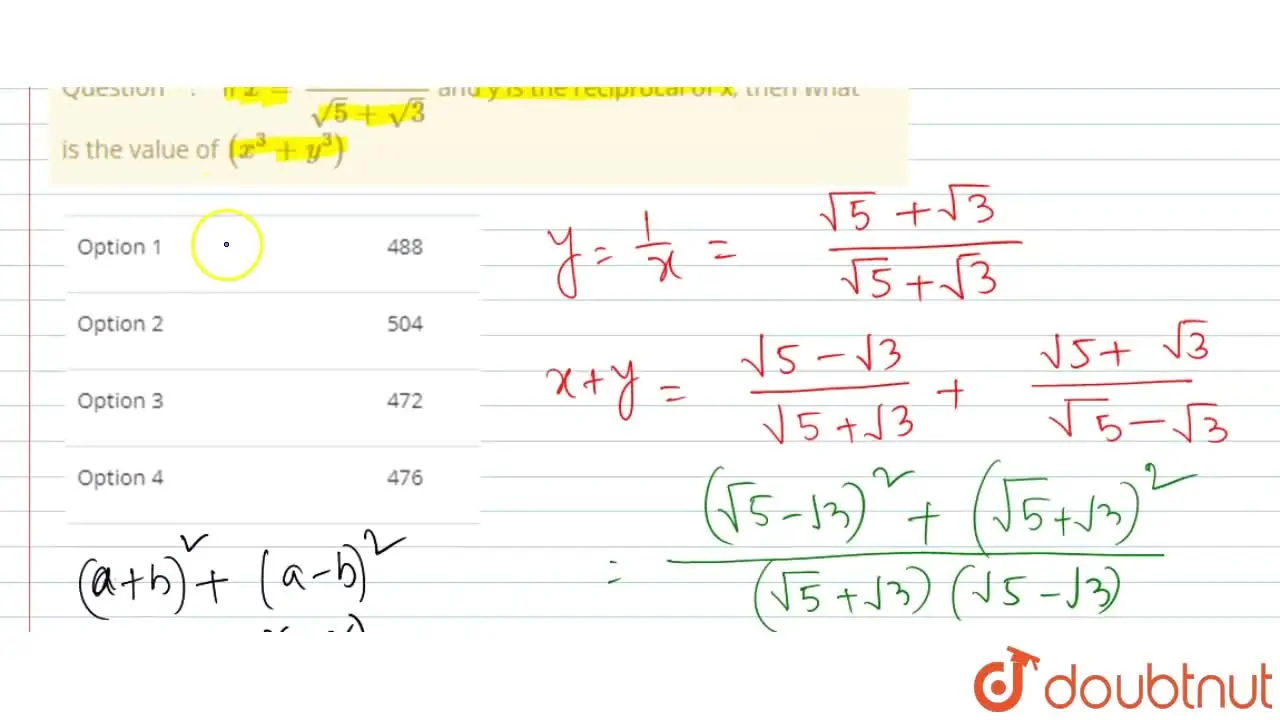 Question : If x = √5 + √3 and y is the reciprocal of x, then what
is the value of (x³ + y³)
Option 1 488
Option 2 504
Option 3 472
Option 4 476
y = 1/x = (√5 + √3)/(√5 + √3)
x + y = (√5 − √3)/(√5 + √3) + (√5 + √3)/(√5 − √3)
= ((√5 − √3)² + (√5 + √3)²)/((√5 + √3)(√5 − √3))
(a+b)² + (a−b)²
doubtnut